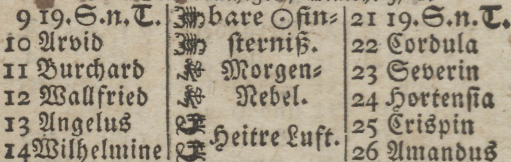 9 19. S. n. T. bare ☉fin- 21 19. S. n. T.
10 Arvid sterniß. 22 Cordula
11 Burchard Morgen- 23 Severin
12 Wallfried Nebel. 24 Hortensia
13 Angelus Heitre Luft. 25 Crispin
14 Wilhelmine 26 Amandus